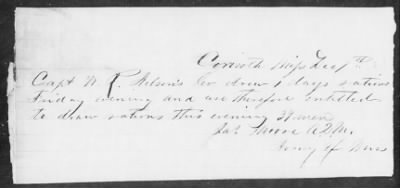 Corinth Miss Dec 7th
Capt N. R. Wilson's Co drew 1 days rations
Friday evening and are therefore entitled
to draw rations this evening 39 men
Jas Moore A.Q.M.
Army of Miss